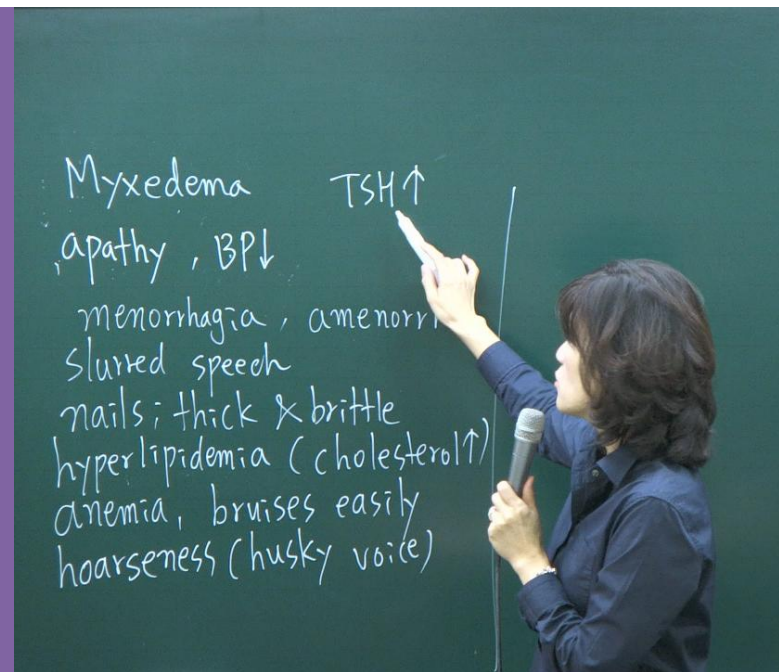 Myxedema TSH↑
apathy, BP↓
menorrhagia, amenorr
slurred speech
nails; thick & brittle
hyperlipidemia (cholesterol↑)
anemia, bruises easily
hoarseness (husky voice)